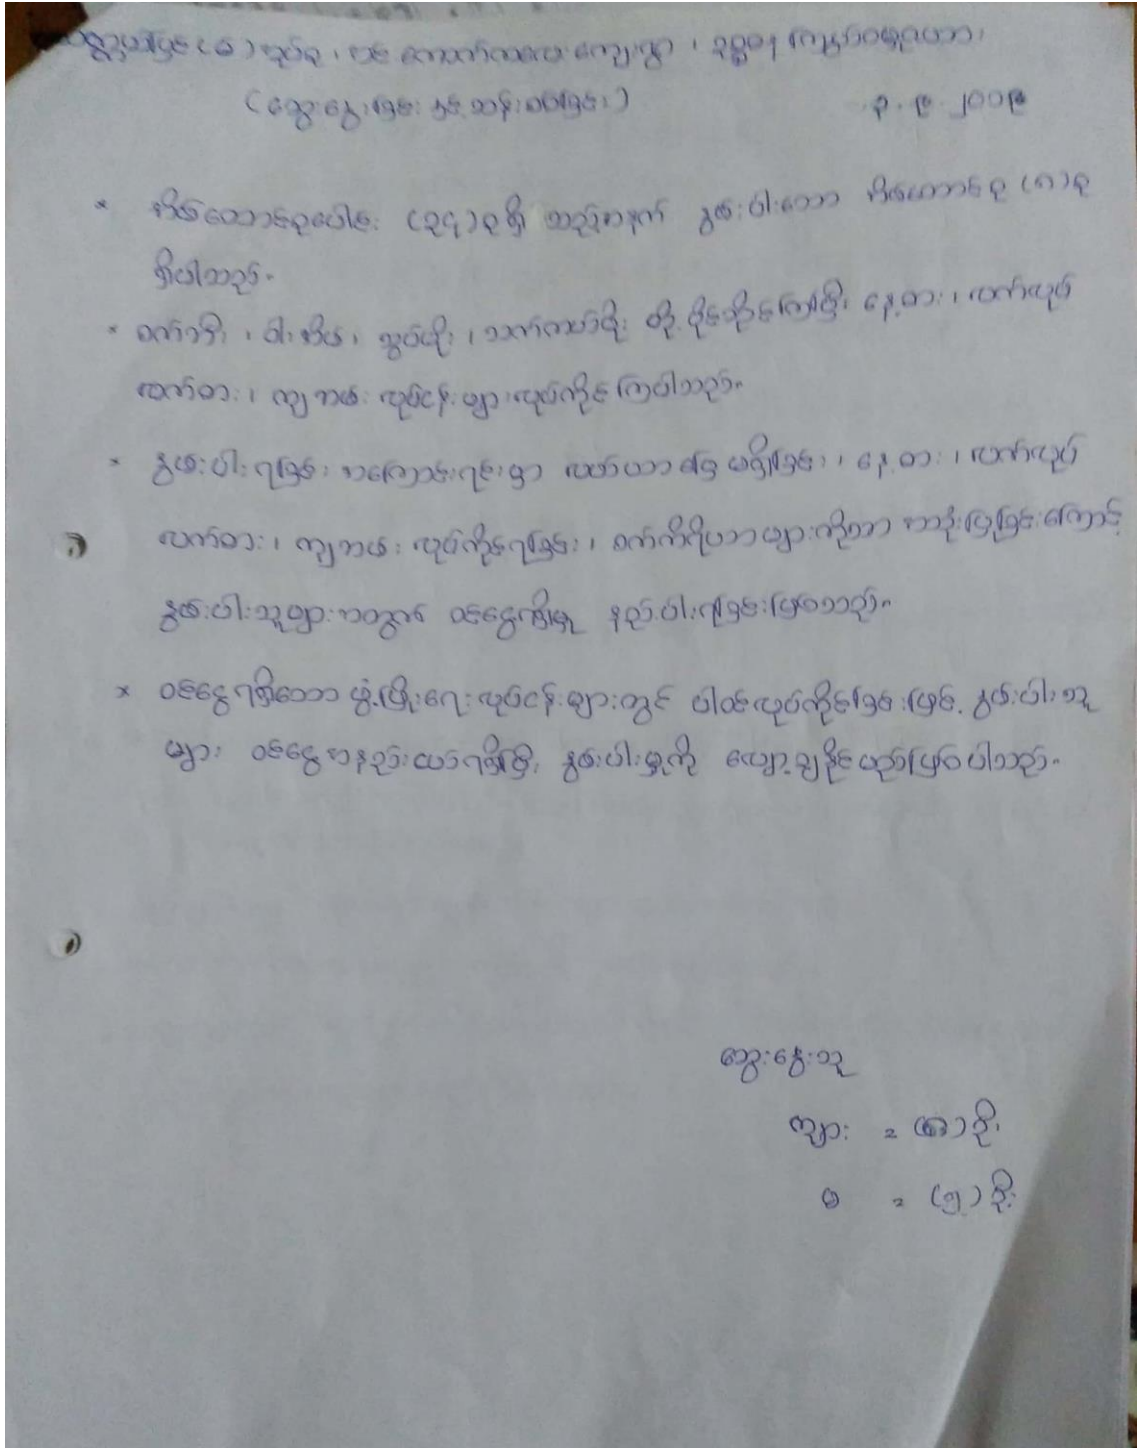 (မ) အုပ်စု ၊ ကျေးရွာ ၊
(ဆွေးနွေးခြင်း နှင့် ဆန်းစစ်ခြင်း)
* အိမ်ထောင်စုပေါင်း (၃၄) စုရှိ သည့်အနက် နွမ်းပါးသော အိမ်ထောင်စု (၈) စု
ရှိပါသည်။
* ဝက်ခြံ ၊ ဝါးအိမ် ၊ သွပ်မိုး ၊ သက်ကယ်မိုး တို့ ပိုင်ဆိုင်ကြပြီး နေ့စား ၊ လက်လုပ်
လက်စား ၊ ကျဘမ်း လုပ်ငန်းများ လုပ်ကိုင်ကြပါသည်။
* နွမ်းပါးရခြင်း အကြောင်းရင်းမှာ လယ်ယာမြေ မရှိခြင်း ၊ နေ့စား ၊ လက်လုပ်
လက်စား ၊ ကျဘမ်း လုပ်ကိုင်ရခြင်း ၊ စက်ကိရိယာများကိုသာ အသုံးပြုခြင်းကြောင့်
နွမ်းပါးသူများအတွက် ဝင်ငွေရရှိမှု နည်းပါးရခြင်းဖြစ်သည်။
* ဝင်ငွေရရှိသော ဖွံ့ဖြိုးရေးလုပ်ငန်းများတွင် ပါဝင်လုပ်ကိုင်ခြင်းဖြင့် နွမ်းပါးသူ
များ ဝင်ငွေအနည်းငယ်ရရှိပြီး နွမ်းပါးမှုကို လျော့ချနိုင်မည်ဖြစ်ပါသည်။
ဆွေးနွေးသူ
ကျား = ဦး
မ = (၅) ဦး